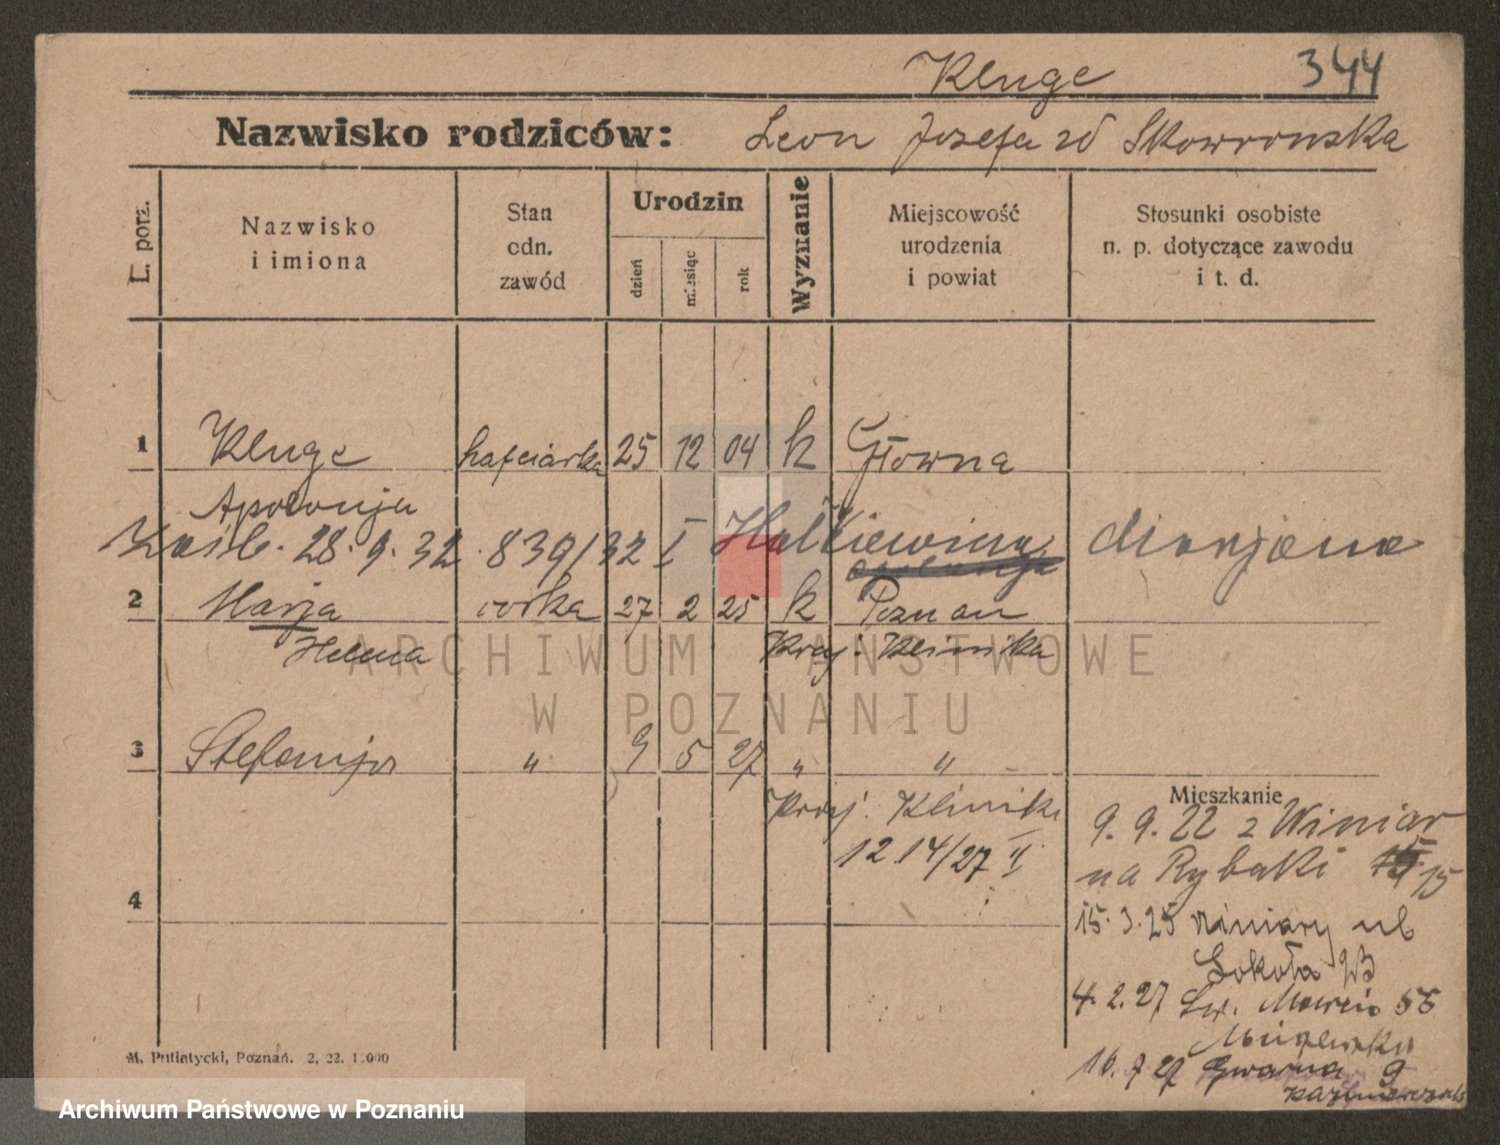 Kluge 344
Nazwisko rodziców: Leon Jozefa zd Skowronska
L. porz.
Nazwisko
i imiona
Stan
cdn.
zawód
Urodzin
dzień
miesiąc
rok
Wyznanie
Miejscowość
urodzenia
i powiat
Stosunki osobiste
n. p. dotyczące zawodu
i t. d.
1 Kluge hafciarka 25 12 04 k Główna
Apolonja
28.9.32 839/32 I Marjana
2 Marja corka 27 2 25 k Poznan
Helena Kraj. Klinika
3 Stefanja " 9 5 27 " "
Kraj. Klinik
12 14/27 II
Mieszkanie
9. 9. 22 z Winiar
na Rybaki 15
15. 3. 25 Winiary ul
Sokoła
4. 2. 27 Św. Marcin 55
16. 7 27 Gwarna 9
4
M. Putiatycki, Poznań. 2, 22. 1.000
ARCHIWUM PAŃSTWOWE
W POZNANIU
Archiwum Państwowe w Poznaniu